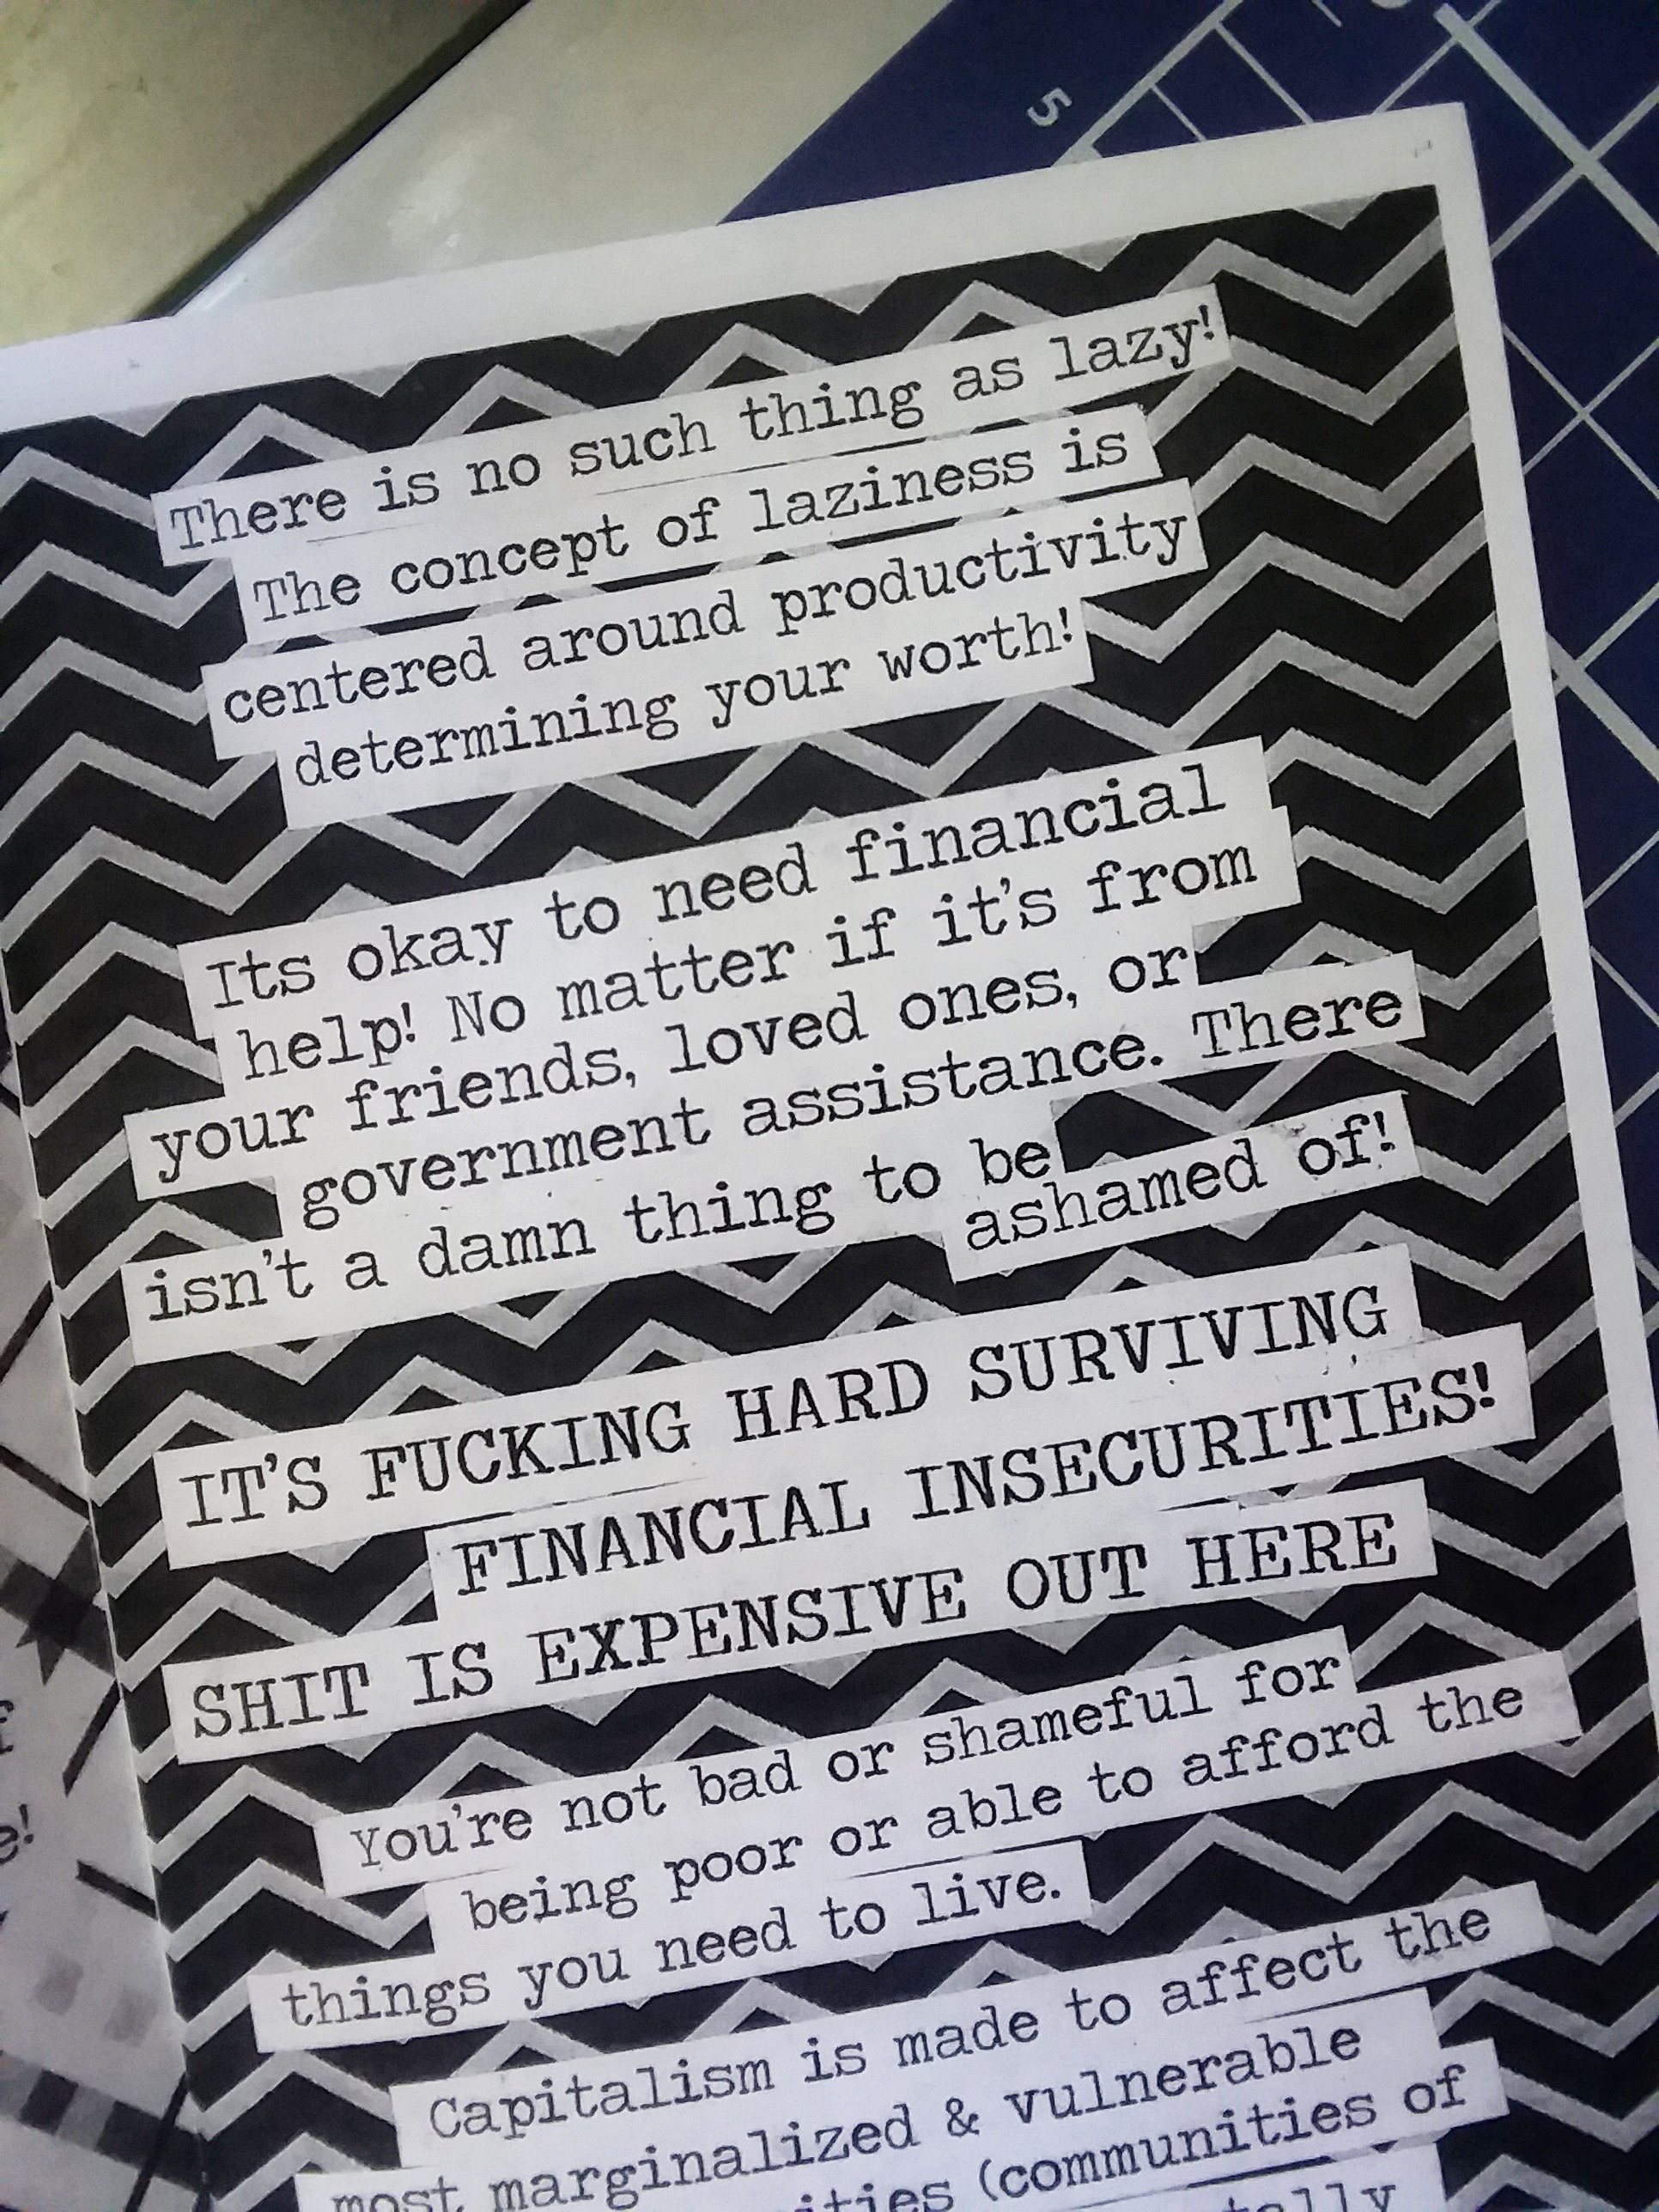 5
There is no such thing as lazy!
The concept of laziness is
centered around productivity
determining your worth!
Its okay to need financial
help! No matter if it's from
your friends, loved ones, or
government assistance. There
isn't a damn thing to be
ashamed of!
IT'S FUCKING HARD SURVIVING
FINANCIAL INSECURITIES!
SHIT IS EXPENSIVE OUT HERE
You're not bad or shameful for
being poor or able to afford the
things you need to live.
Capitalism is made to affect the
most marginalized & vulnerable
(communities of